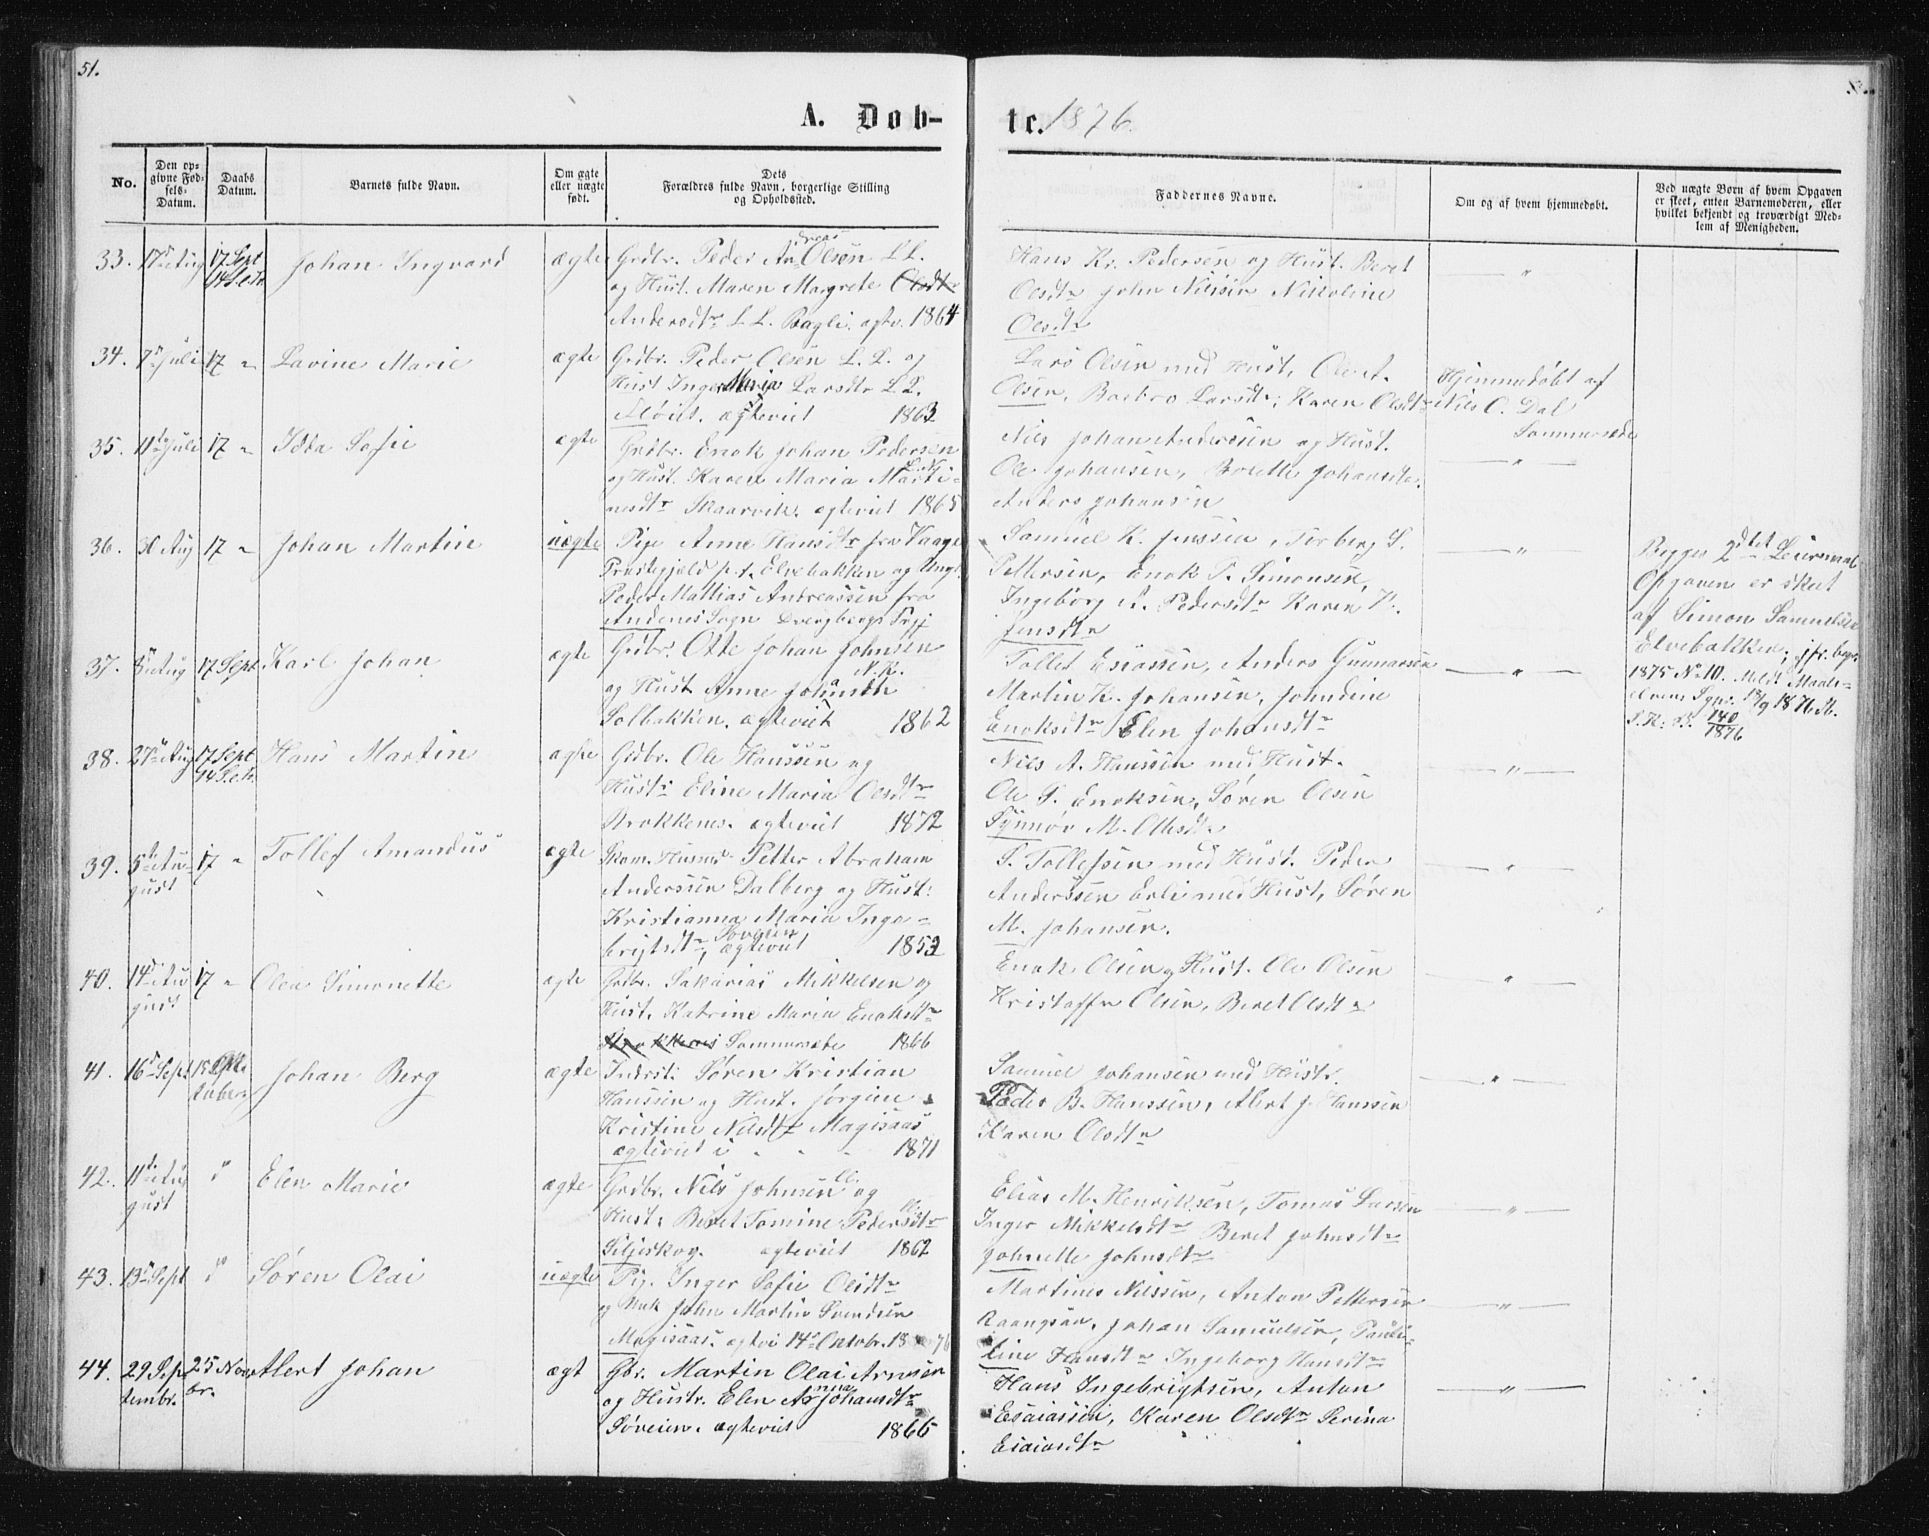 51.
A. Døb-
te. 1876.
No.
Den op-
givne Fød-
sels-
Datum.
Daabs
Datum.
Barnets fulde Navn.
Om ægte
eller uægte
født.
Dets
Forældres fulde Navn, borgerlige Stilling
og Opholdssted.
Faddernes Navne.
Om og af hvem hjemmedøbt.
Ved uægte Børn af hvem Opgaven
er skeet, enten Barnemoderen, eller
hvilket bekjendt og troværdigt Med-
lem af Menigheden.
33. 17de Aug 17 Sept Johan Ingvard ægte Grdbr. Peder Andreas Olsen L.L.
og Hust. Maren Margrete Olsdtr
Andersdtr L.L. Bagli. ægtv. 1864
Hans Kr. Pedersen og Hust. Beret
Olsdtr John Nilssen Nikoline
Olsdtr
34. 7de Juli 17 " Lavine Marie ægte Grdbr. Peder Olsen L.L. og
Hust Inger Maria Larsdtr L.L.
ægteviet 1863
Lars Olsen med Hust, Ole A.
Olsen, Barbro Larsdtr, Karen Olsdtr
Hjemmedøbt af
Nils O. Dal
Sommersæde
35. 11te Juli 17 " Idda Sofie ægte Grdbr. Enok Johan Pedersen
og Hust. Karen Maria Marti-
nesdtr Skaarvik, ægteviet 1865
Nils Johan Anderssen og Hust.
Ole Johansen, Bolette Johansdtr.
Anders Johansen
36. 30 Aug 17 " Johan Martin uægte Pige Anne Hansdtr fra Vaage
Præstegjeld p.t. Elvebakken og Ung.
Peder Mattias Andreassen fra
Andenes Sogn Dverbergs Prgj
Samuel K. Jenssen, Torberg S.
Pettersen, Enok P. Simonsen,
Ingeborg A. Pedersdtr Karen K.
Jensdtr
Begges 2det Leiermaal
Opgaven er skeet
af Simon Samuelsen
Elvebakken; jfr. begr.
1875 No 10. Meldt Maals-
elvens Sgpr. 18/9 1876 M.
140
1876
37. 5te Aug 17 Sept Karl Johan ægte Grdbr. Otte Johan Johnsen
N.K.
og Hust Anne Johansdtr
Solbakken. ægteviet 1862
Tollef Esiassen, Anders Gunnarsen
Martin K. Johansen, Johndine
Enoksdtr Elen Johansdtr
38. 27de Aug 17 Sept Hans Martin ægte Grdbr. Ole Hanssen og
Hustr Eline Maria Olsdtr
Brokkenes. ægteviet 1872
Nils A. Hanssen med Hust.
Ole P. Enoksen, Søren Olsen
Synnøv M. Olsdtr
39. 5te Au-
gust 17 " Tollef Amandus ægte Petter Abraham
Anderssen Dalberg og Hust.
Kristianna Maria Inge-
brigtsdtr, Sørveien ægteviet 1853
P. Tollefsen med Hust. Peder
Anderssen Erli med Hust, Søren
M. Johansen.
40. 14de Au
gust 17 " Olea Simonette ægte Grdbr. Sakarias Mikkelsen og
Hust. Katrine Maria Enoksdtr
Brokkenes Sommersæde 1866
Enok Olsen og Hust. Ole Olsen
Kristoffer Olsen, Beret Olsdtr
41. 16de Sept 15 Ok-
tober Johan Berg ægte Inderst: Søren Kristian
Hanssen og Hust. Jørgine
Kristine Nilsdtr Magisaas
ægteviet i " " " 1871
Samuel Johansen med Hustr.
Peder B. Hanssen, Alert J. Hanssen
Karen Olsdtr
42. 11te Au
gust do Elen Marie ægte Grdbr. Nils Johnsen L.L. og
Hust. Beret Tomine Pedersdtr
Siljeskog. ægteviet 1862
Elias M. Henriksen, Tomas Larsen
Inger Mikkelsdtr Beret Johnsdtr
Johnette Johnsdtr
43. 13de Sept do Søren Olai uægte Pig. Inger Sofie Olsdtr
og Unk John Martin Svendsen
Magisaas. ægtev 14de Oktobr. 1876
Martines Nilssen, Anton Pettersen
Johan Samuelsen, Pauli-
line Hansdtr Ingeborg Hansdtr
44. 29 Sep-
tembr. 25 Nov
br. Alert Johan ægt Gbr. Martin Olai Arnesen
og Hustr. Elen Anna Johansdtr
Sørveien. ægteviet 1866
Hans Ingebrigtsen, Anton
Esaiassen, Karen Olsdtr Serina
Esaiasdtr